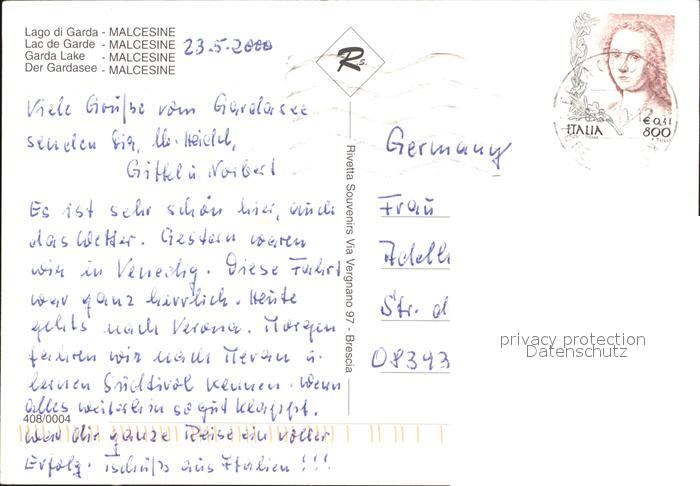 Lago di Garda - MALCESINE
Lac de Garde - MALCESINE
Garda Lake - MALCESINE
Der Gardasee - MALCESINE
23.5.2000
Rs.
Viele Grüße vom Gardasee
senden Dir,
Gittel u. Norbert
Es ist sehr schön hier, auch
das Wetter. Gestern waren
wir in Venedig. Diese Fahrt
war ganz herrlich. Heute
gehts nach Verona. Morgen
fahren wir nach Meran u.
lernen Südtirol kennen. Wenn
alles weiterhin so gut klappt,
408/0004
war die ganze Reise ein voller
Erfolg. Tschüß aus Italien !!!
Rivetta Souvenirs Via Vergnano 97 - Brescia
ITALIA
€ 0,41
800
Germany
Frau
Adelh
Str. d
08393
privacy protection
Datenschutz